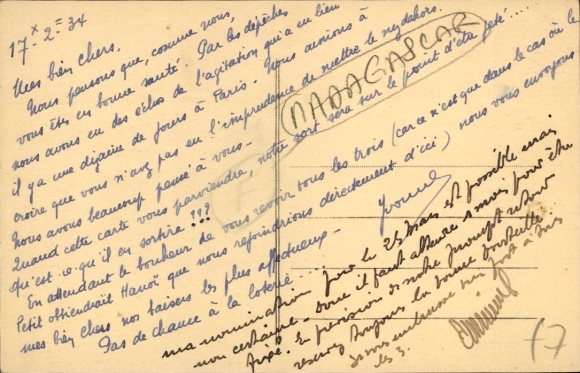 17 x 2 = 34
Mes bien chers,
Nous pensons que, comme nous,
vous êtes en bonne santé. Par les dépêches
nous avons eu des échos de l'agitation qui a eu lieu
il y a une dizaine de jours à Paris - Nous aimons à
croire que vous n'avez pas eu l'imprudence de mettre le nez dehors.
Nous avons beaucoup pensé à vous -
Quand cette carte vous parviendra, notre sort sera sur le point d'être jeté....
qu'est-ce qu'il en sortira ???
En attendant le bonheur de vous revoir tous les trois (car ce n'est que dans le cas où le
Petit obtiendrait Hanoï que nous rejoindrions directement d'ici) nous vous envoyons
mes bien chers nos baisers les plus affectueux -
Pas de chance à la loterie....
Yvonne
MADAGASCAR
ma nomination pour le 25 Mars est possible mais
non certaine - donc il faut attendre 1 mois pour être
fixé. En prévision de notre prompt retour
réservez toujours la bonne bouteille...
Je vous embrasse bien fort à tous
les 3.
17